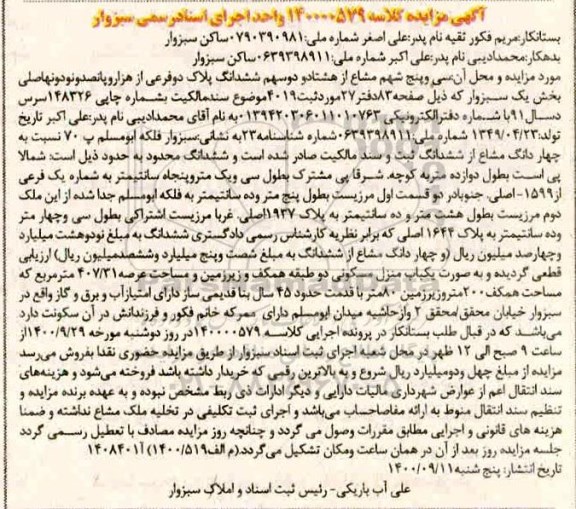 آگهی مزایده کلاسه ۱۴۰۰۰۰۵۷۹ واحد اجرای اسناد رسمی سبزوار
بستانکار:مریم فکور ثقیه نام پدر:علی اصغر شماره ملی:۰۷۹۰۳۹۰۹۸۱ساکن سبزوار
بدهکار:محمدادیبی نام پدر:علی اکبر شماره ملی:۰۶۳۹۳۹۸۹۱۱ساکن سبزوار
مورد مزایده و محل آن:سی وپنج شهم مشاع از هشتادو دوسهم ششدانگ پلاک دوفرعی از هزاروپانصدونودونهاصلی
بخش یک سبزوار که ذیل صفحه۸۳دفتر۲۷موردثبت۴۰۱۹موضوع سندمالکیت بشماره چاپی ۱۴۸۳۲۶سرس
دسال۹۱با شماره دفترالکترونیکی۱۳۹۴۲۰۳۰۶۰۱۱۰۱۰۷۶۳به نام آقای محمدادیبی نام پدر:علی اکبر تاریخ
تولد:۱۳۴۹/۰۴/۲۳ شماره ملی:۰۶۳۹۳۹۸۹۱۱ شماره شناسنامه۲۳به نشانی:سبزوار فلکه ابومسلم پ ۷۰ نسبت به
چهار دانگ مشاع از ششدانگ ثبت و سند مالکیت صادر شده است و ششدانگ محدود به حدود ذیل است: شمالا
پی است بطول دوازده متربه کوچه. شرقا پی مشترک بطول سی ویک متروپنجاه سانتیمتر به شماره یک فرعی
از۱۵۹۹- اصلی. جنوبادر دو قسمت اول مرزیست بطول پنج متر وده سانتیمتر به فلکه ابومسلم جدا شده از این ملک
دوم مرزیست بطول هشت متر و ده سانتیمتر به پلاک ۱۹۳۷اصلی. غربا مرزیست اشتراکی بطول سی وچهار متر
وده سانتیمتر به پلاک ۱۶۴۴ اصلی که برابر نظریه کارشناس رسمی دادگستری ششدانگ به مبلغ نودوهشت میلیارد
وچهارصد میلیون ریال (و چهار دانگ مشاع از ششدانگ به مبلغ شصت وپنج میلیارد وششصدمیلیون ریال) ارزیابی
قطعی گردیده و به صورت یکباب منزل مسکونی دو طبقه همکف و زیرزمین و مساحت عرصه۴۰۷/۳۱ مترمربع که
مساحت همکف۲۰۰متروزیرزمین ۸۰متر با قدمت حدود ۴۵ سال بنا قدیمی ساز دارای امتیازآب و برق و گاز واقع در
سبزوار خیابان محقق/محقق ۲ وازحاشیه میدان ابومسلم دارای ممرکه خانم فکور و فرزندانش در آن سکونت دارد
می‌باشد. که در قبال طلب بستانکار در پرونده اجرایی کلاسه ۱۴۰۰۰۰۵۷۹در روز دوشنبه مورخه ۱۴۰۰/۹/۲۹از
ساعت ۹ صبح الی ۱۲ ظهر در محل شعبه اجرای ثبت اسناد سبزوار از طریق مزایده حضوری نقدا بفروش می‌رسد
مزایده از مبلغ چهل ودومیلیارد ریال شروع و به بالاترین رقمی که خریدار داشته باشد فروخته می‌شود و هزینه‌های
سند انتقال اعم از عوارض شهرداری، مالیات دارایی و دیگر ادارات ذی ربط مشخص نبوده و به عهده برنده مزایده و
تنظیم سند انتقال منوط به ارائه مفاصاحساب می‌باشد و اجرای ثبت تکلیفی در تخلیه ملک مشاع نداشته و ضمنا
هزینه های قانونی و اجرایی مطابق مقررات وصول می گردد و چنانچه روز مزایده مصادف با تعطیل رسمی گردد
جلسه مزایده روز بعد از آن در همان ساعت ومکان تشکیل می‌گردد.(م الف۱۴۰۰/۵۱۹) آ۱۴۰۸۴۰۱
تاریخ انتشار: پنج شنبه۱۴۰۰/۰۹/۱۱
علی آب باریکی- رئیس ثبت اسناد و املاک سبزوار